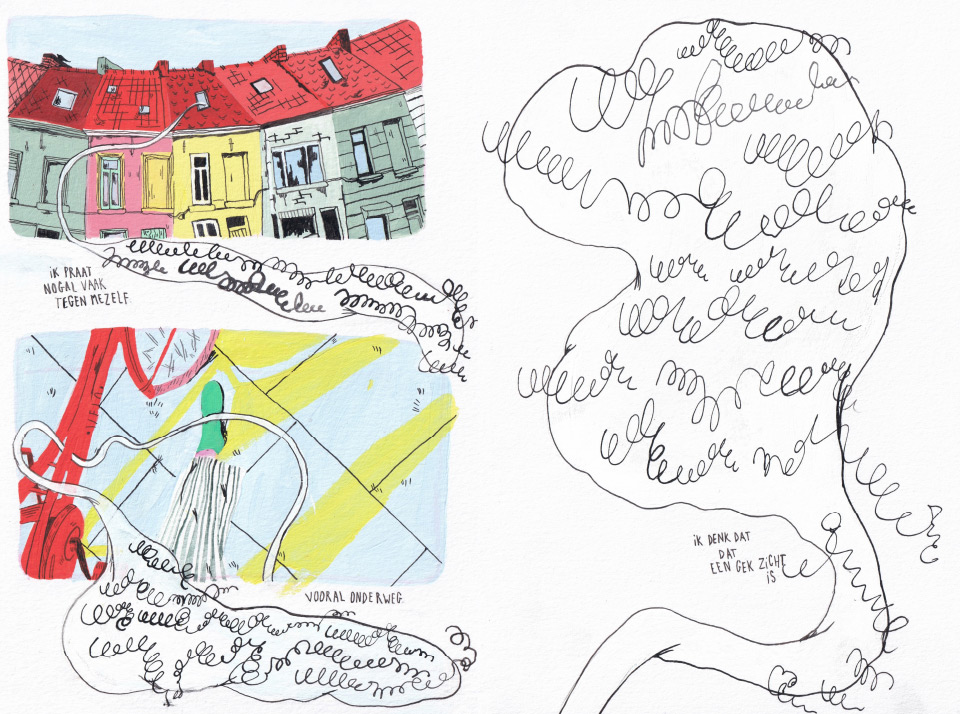 iK PRAAT
NOGAL VAAK
TEGEN MEZELF.
VOORAL ONDERWEG.
iK DENK DAT
DAT
EEN GEK ZiCHT
iS